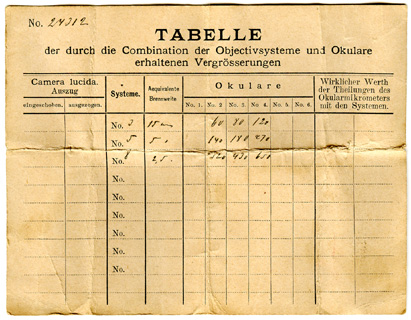 No. 24312
TABELLE
der durch die Combination der Objectivsysteme und Okulare
erhaltenen Vergrösserungen
Camera lucida.
Auszug
eingeschoben. ausgezogen.
Systeme.
Aequivalente
Brennweite
Okulare
No. 1. No. 2 No. 3 No. 4. No. 5. No. 6.
Wirklicher Werth
der Theilungen des
Okularmikrometers
mit den Systemen.
No. 3 60 80 120
No. 5 140 180
No. 8 430 600
No.
No.
No.
No.
No.
No.